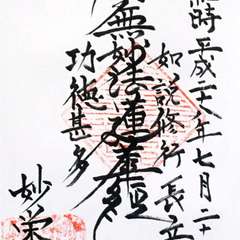 時平成二十八年七月二十
如説修行
南無妙法蓮華経
功徳甚多
妙栄